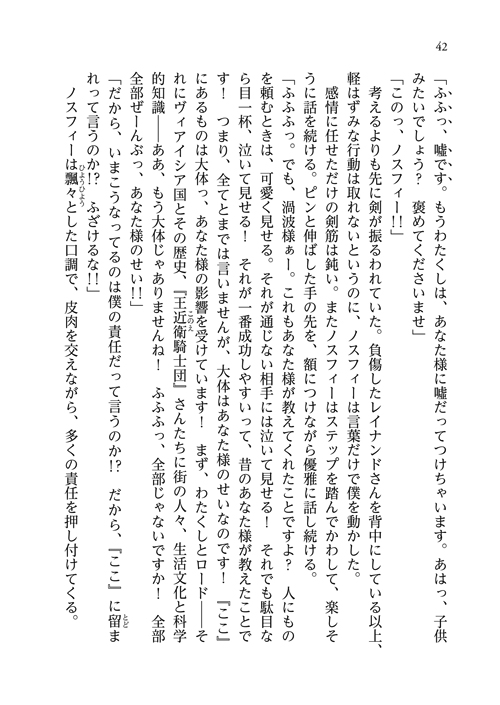 42
「ふふふっ、嘘です。もうわたくしは、あなた様に嘘だってつけちゃいます。あはっ、子供
みたいでしょう？　褒めてくださいませ」
「このっ、ノスフィー!!」
　考えるよりも先に剣が振るわれていた。負傷したレイナンドさんを背中にしている以上、
軽はずみな行動は取れないというのに、ノスフィーは言葉だけで僕を動かした。
　感情に任せただけの剣筋は鈍い。またノスフィーはステップを踏んでかわして、楽しそ
うに話を続ける。ピンと伸ばした手の先を、額につけながら優雅に話し続ける。
「ふふふっ。でも、渦波様ぁー。これもあなた様が教えてくれたことですよ？　人にもの
を頼むときは、可愛く見せる。それが通じない相手には泣いて見せる！　それでも駄目な
ら目一杯、泣いて見せる！　それが一番成功しやすいって、昔のあなた様が教えたことで
す！　つまり、全てとまでは言いませんが、大体はあなた様のせいなのです！　『ここ』
にあるものは大体っ、あなた様の影響を受けています！　まず、わたくしとロード――そ
れにヴィアイシア国とその歴史、『王近衛騎士団』さんたちに街の人々、生活文化と科学
的知識――ああ、もう大体じゃありませんね！　ふふふっ、全部じゃないですか！　全部
全部ぜーんぶっ、あなた様のせい!!」
「だから、いまこうなってるのは僕の責任だって言うのか!?　だから、『ここ』に留ま
れって言うのか!?　ふざけるな!!」
　ノスフィーは飄々とした口調で、皮肉を交えながら、多くの責任を押し付けてくる。